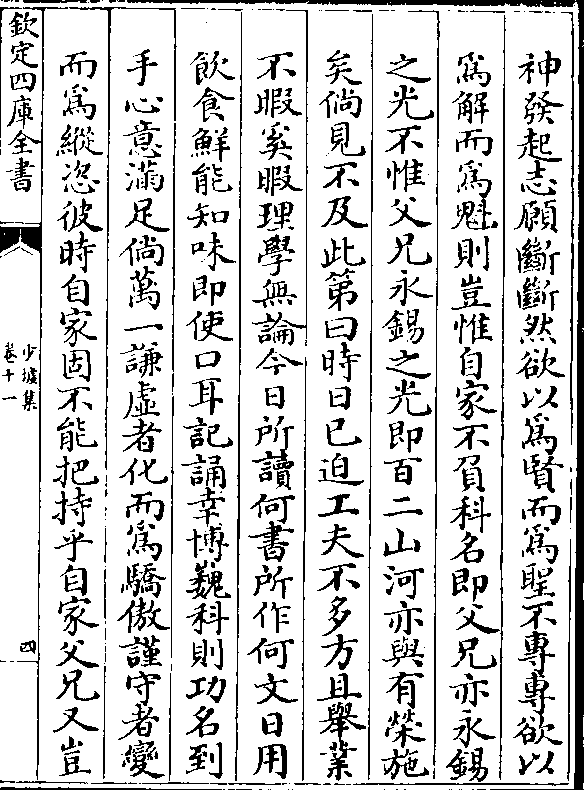 神發起志願斷斷然欲以爲賢而爲聖不專專欲以
爲解而爲魁則豈惟自家不負科名即父兄亦永錫
之光不惟父兄永錫之光即百二山河亦與有榮施
矣倘見不及此第曰時日已迫工夫不多方且舉業
不暇奚暇理學無論今日所讀何書所作何文日用
飲食鮮能知味即使口耳記誦幸博巍科則功名到
手心意滿足倘萬一謙虛者化而爲驕傲謹守者變
而爲縱恣彼時自家固不能把持乎自家父兄又豈
欽定四庫全書
少墟集
卷十一
四